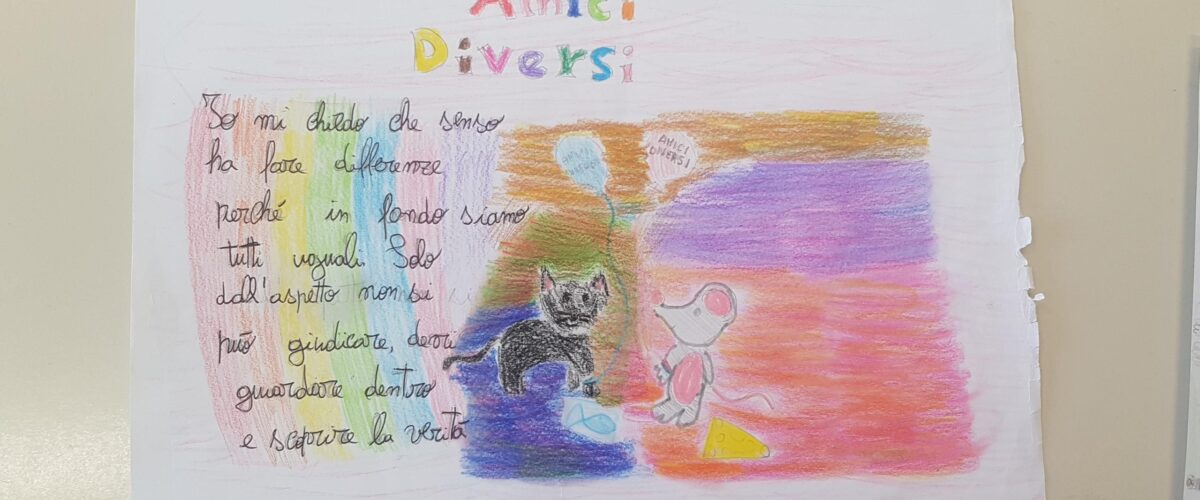 Amici
Diversi
Io mi chiedo che senso
ha fare differenze
perché in fondo siamo
tutti uguali. Solo
dall'aspetto non si
può giudicare, devi
guardare dentro
e scoprire la verità
AMICI
DIVERSI